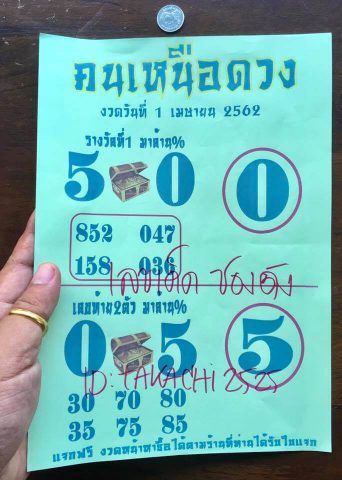 คนเหนือดวง
งวดวันที่ 1 เมษายน 2562
รางวัลที่1 มาล้าน%
5 0 0
852 047
158 036
เลขเด็ด ช่องดัง
เลขท้าย2ตัว มาล้าน%
0 5 5
ID: TAKACHI 2525
30 70 80
35 75 85
แจกฟรี งวดหน้าหาซื้อได้ตามร้านที่ท่านได้รับใบแจก